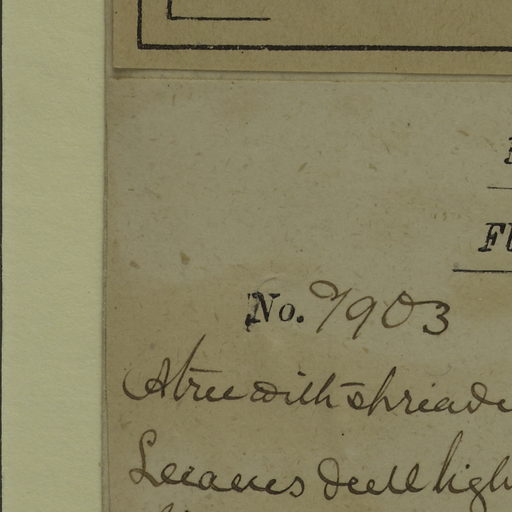 Fl
No. 7903
A tree with spreade
Leaves dull ligh